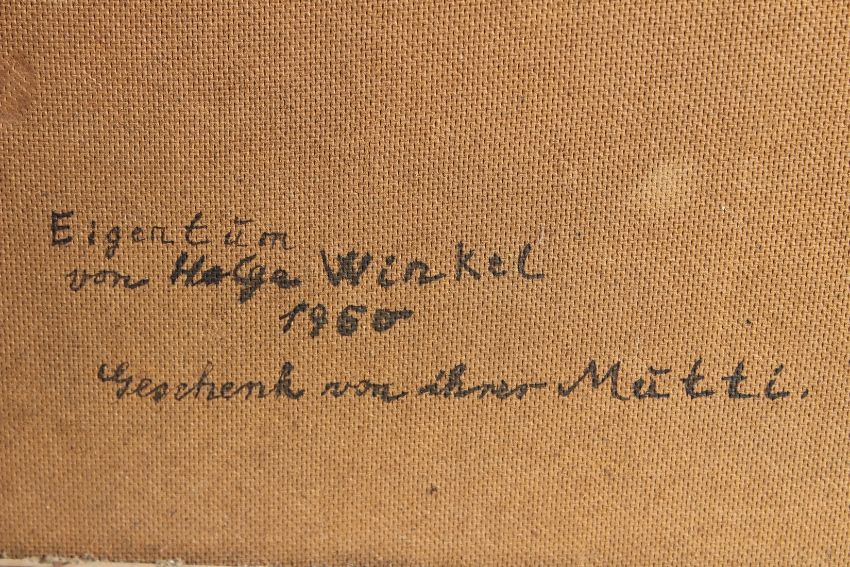 Eigentum
von Helga Winkel
1960
Geschenk von ihrer Mutti.